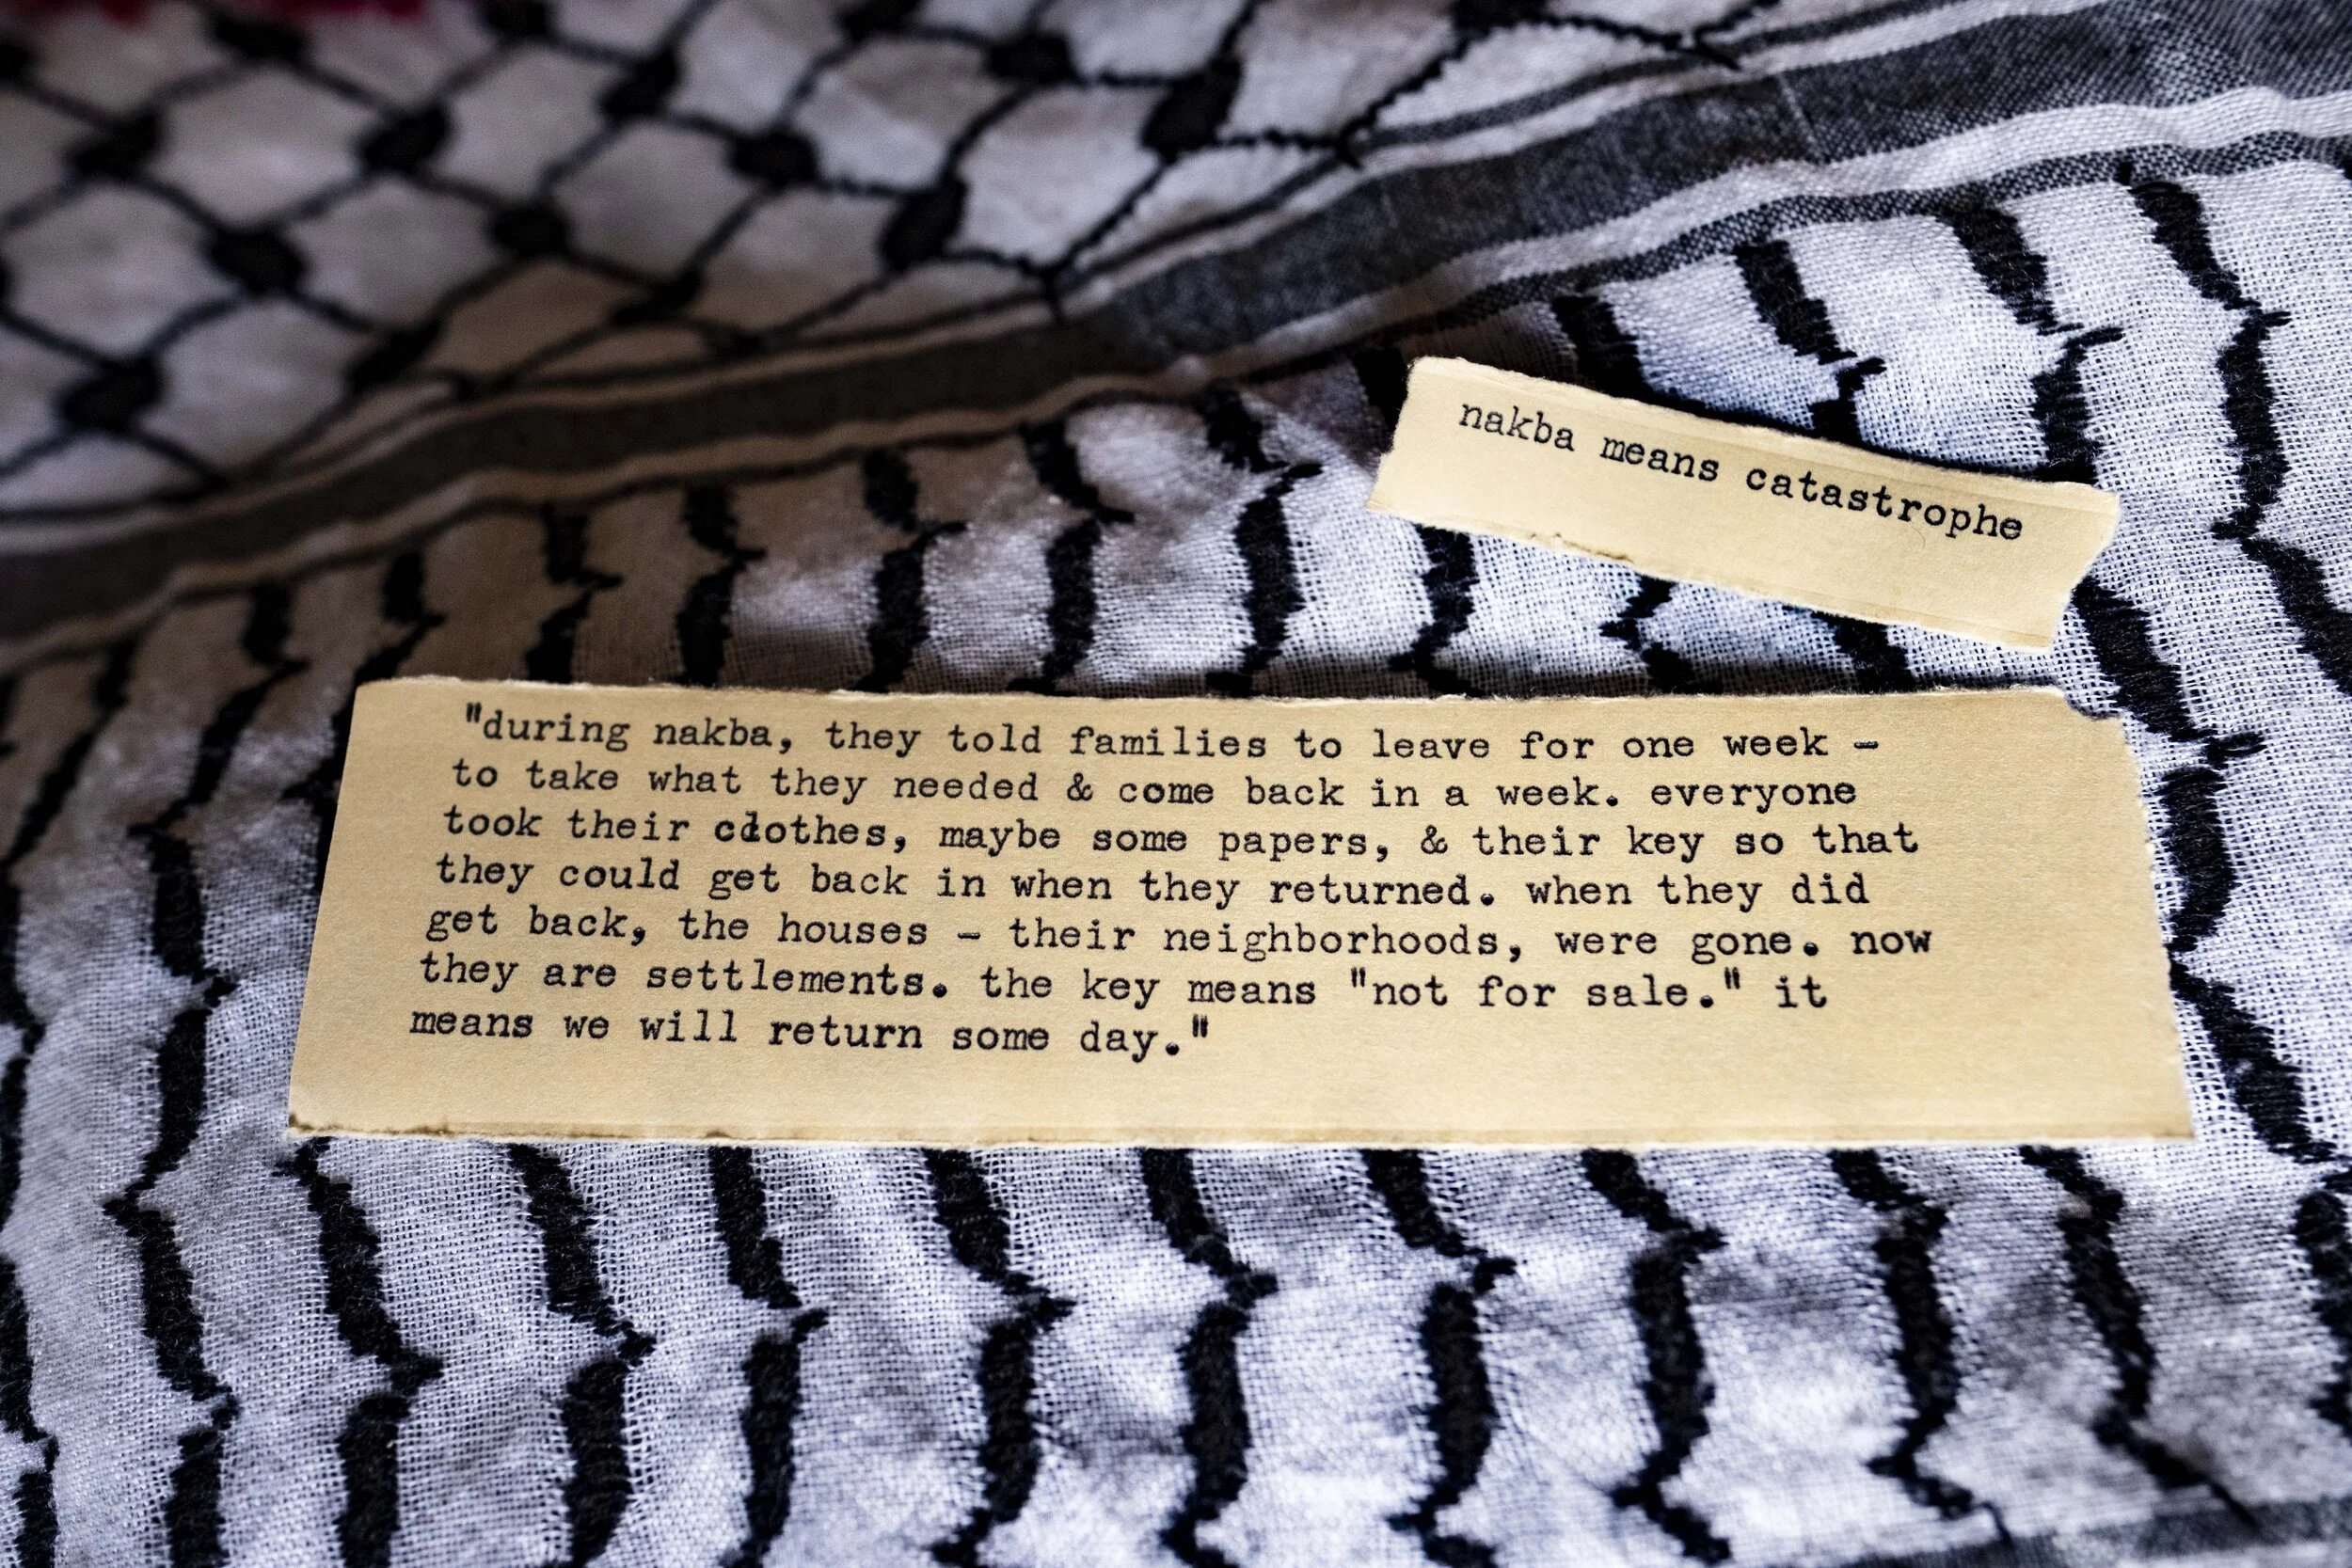 nakba means catastrophe
"during nakba, they told families to leave for one week -
to take what they needed & come back in a week. everyone
took their clothes, maybe some papers, & their key so that
they could get back in when they returned. when they did
get back, the houses - their neighborhoods, were gone. now
they are settlements. the key means "not for sale." it
means we will return some day."